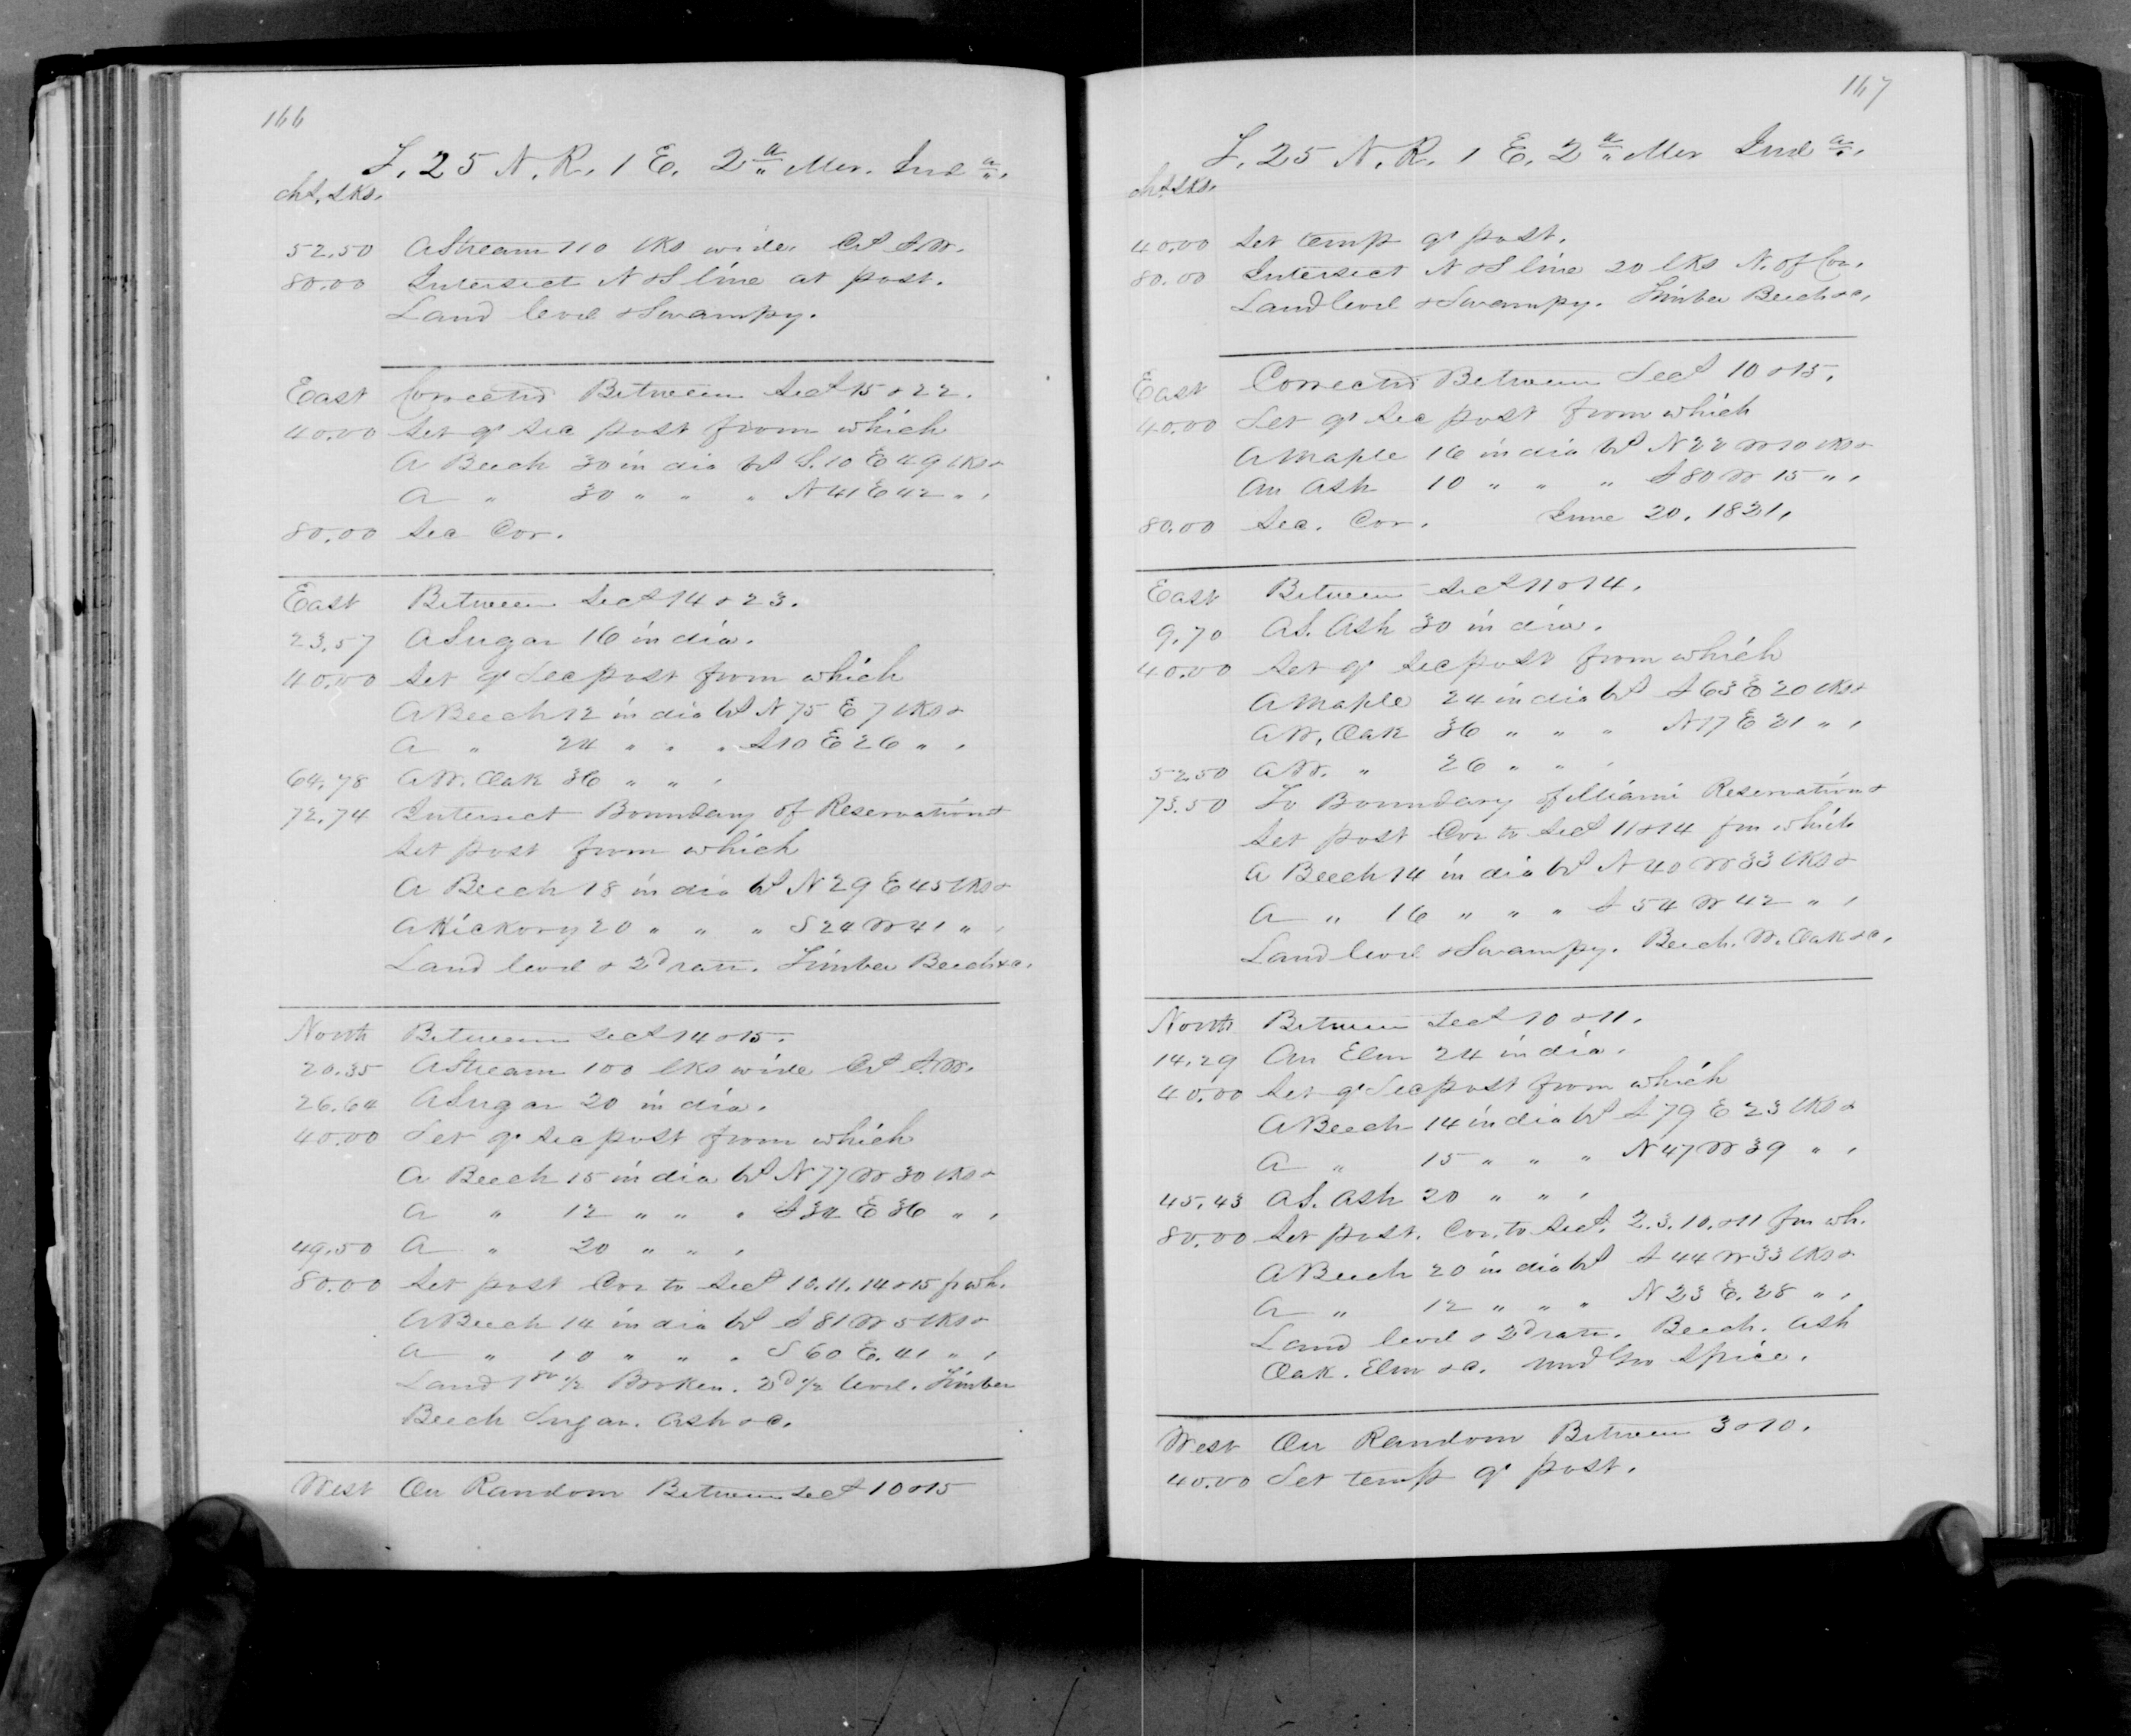 166
T. 25 N. R. 1 E. 2nd Mer. Inda.
chs. lks.
52.50 A Stream 110 lks wide. Cs S.W.
80.00 Intersect N & S line at post.
Land level & Swampy.
East Corrected Between Secs 15 & 22.
40.00 Set qr Sec post from which
A Beech 30 in dia bs S. 10 E 49 lks &
A " 30 " " " N 41 E 42 " ,
80.00 Sec Cor.
East Between Secs 14 & 23.
23.57 A Sugar 16 in dia.
40.00 Set qr Sec post from which
A Beech 12 in dia bs N 75 E 7 lks &
A " 24 " " " S 10 E 26 " ,
64.78 A W. Oak 36 " " ,
72.74 Intersect Boundary of Reservation &
Set post from which
A Beech 18 in dia bs N 29 E 45 lks &
A Hickory 20 " " " S 24 W 41 " ,
Land level & 2d rate. Timber Beech &c.
North Between Secs 14 & 15.
20.35 A Stream 100 lks wide Cs S.W.
26.64 A Sugar 20 in dia.
40.00 Set qr Sec post from which
A Beech 15 in dia bs N 77 W 30 lks &
A " 12 " " " S 34 E 36 " ,
49.50 A " 20 " " ,
80.00 Set post Cor to Secs 10. 11. 14 & 15 fr wh.
A Beech 14 in dia bs S 81 W 5 lks &
A " 10 " " " S 60 E. 41 " ,
Land 1st 1/2 Broken. 2d 1/2 level. Timber
Beech Sugar. Ash &c.
West On Random Between Secs 10 & 15
167
T. 25 N. R. 1 E. 2nd Mer Inda.
chs. lks.
40.00 Set temp qr post.
80.00 Intersect N & S line 20 lks N. of Cor.
Land level & Swampy. Timber Beech &c.
East Corrected Between Secs 10 & 15.
40.00 Set qr Sec post from which
A Maple 16 in dia bs N 22 W 10 lks &
An Ash 10 " " " S 80 W 15 " ,
80.00 Sec. Cor. June 20. 1831.
East Between Secs 11 & 14.
9.70 A S. Ash 30 in dia.
40.00 Set qr Sec post from which
A Maple 24 in dia bs S 63 E 20 lks &
A W. Oak 36 " " " N 17 E 21 " ,
52.50 A W. " 26 " " ,
73.50 To Boundary of Miami Reservation &
Set post Cor to Secs 11 & 14 fm which
A Beech 14 in dia bs N 40 W 33 lks &
A " 16 " " " S 54 W 42 " ,
Land level & Swampy. Beech. W. Oak &c.
North Between Secs 10 & 11.
14.29 An Elm 24 in dia.
40.00 Set qr Sec post from which
A Beech 14 in dia bs S 79 E 23 lks &
A " 15 " " " N 47 W 39 " ,
45.43 A S. Ash 20 " " ,
80.00 Set post. Cor. to Secs. 2. 3. 10. & 11 fm wh.
A Beech 20 in dia bs S 44 W 33 lks &
A " 12 " " " N 23 E. 28 " ,
Land level & 2d rate. Beech. Ash
Oak. Elm &c. Und Gro Spice.
West On Random Between 3 & 10.
40.00 Set temp qr post.